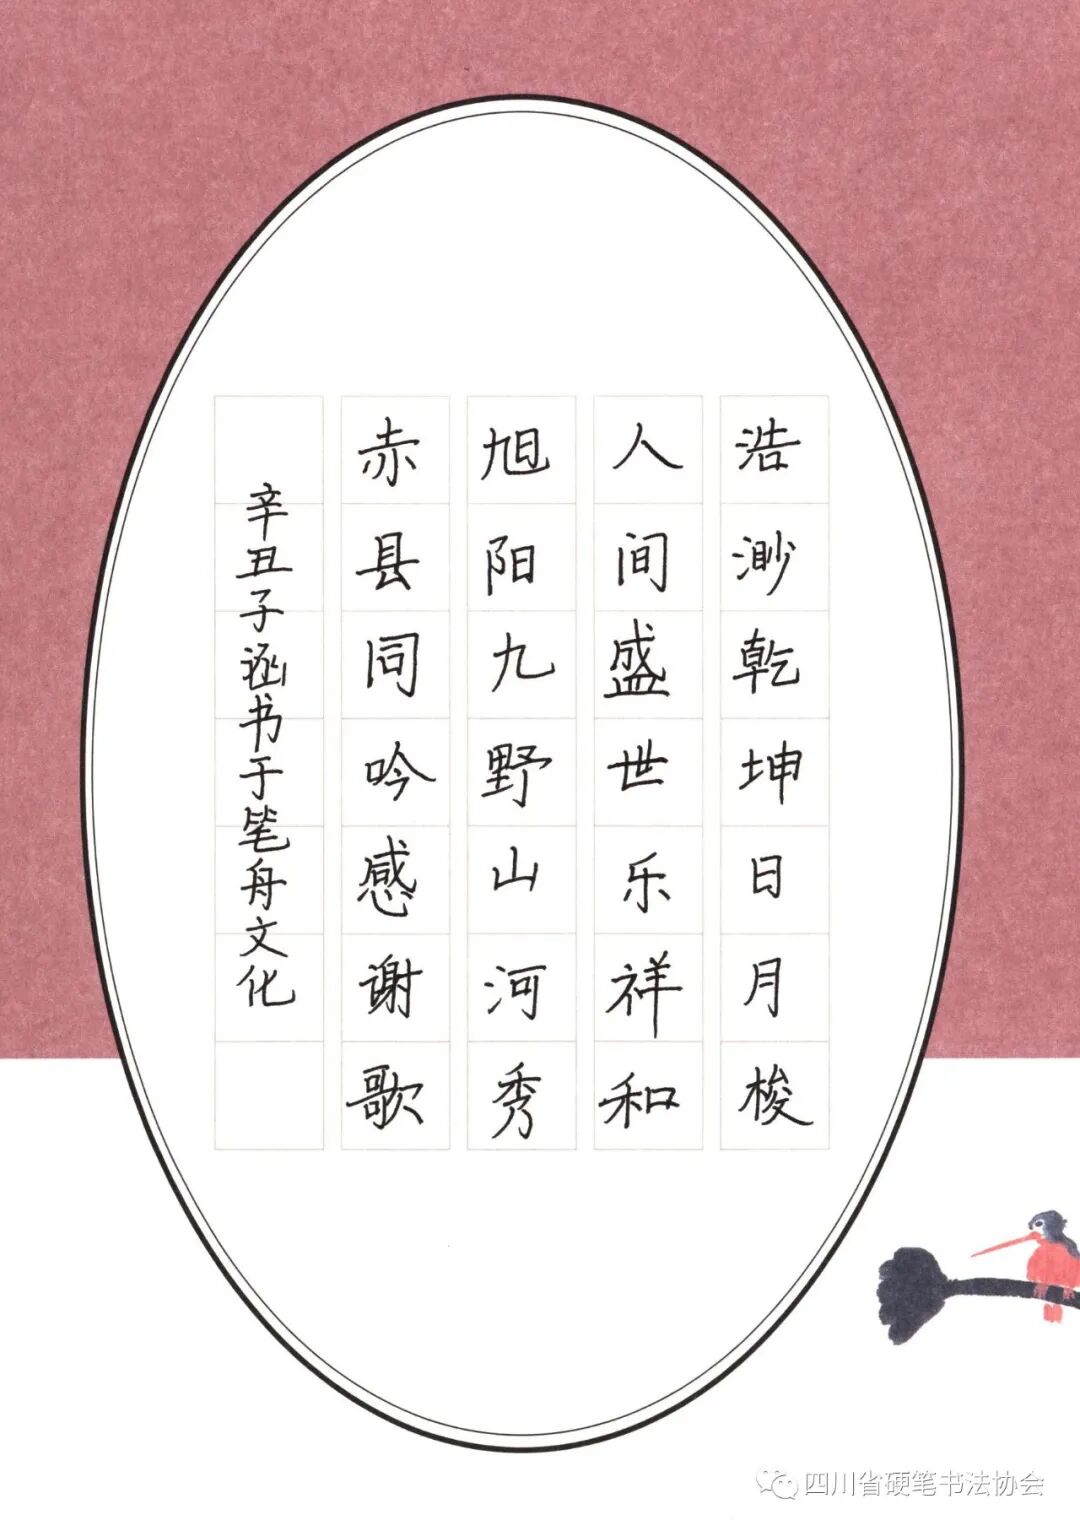 浩渺乾坤日月梭
人间盛世乐祥和
旭阳九野山河秀
赤县同吟感谢歌
辛丑子涵书于笔舟文化
四川省硬笔书法协会